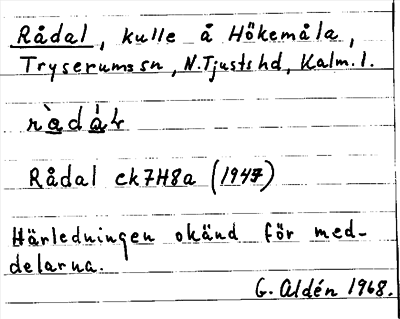 Rådal, kulle å Hökemåla,
Tryserums sn, N.Tjusts hd, Kalm.l.
Rådal ek7H8a (1947)
Härledningen okänd för med-
delarna.
G. Aldén 1968.